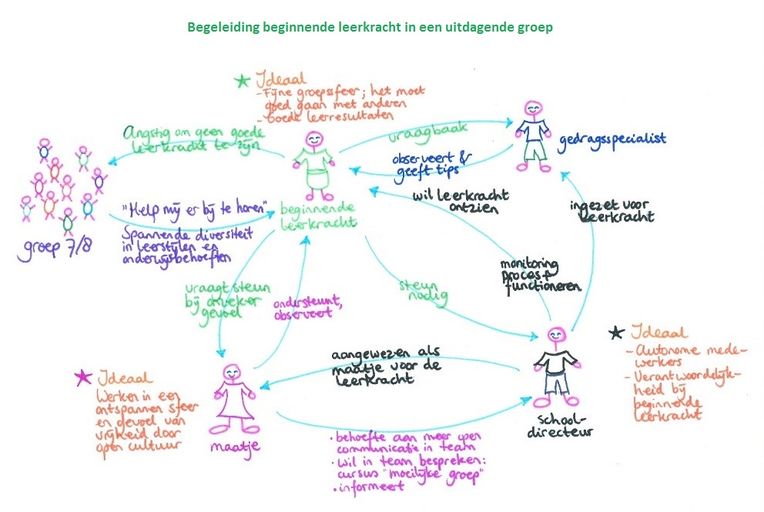 Begeleiding beginnende leerkracht in een uitdagende groep
Ideaal
- Fijne groepssfeer; het moet
goed gaan met anderen
- Goede leerresultaten
Angstig om geen goede
leerkracht te zijn
vraagbaak
observeert &
geeft tips
gedragsspecialist
"Help mij er bij te horen"
Spannende diversiteit
in leerstylen en
onderwijsbehoeften
groep 7/8
beginnende
leerkracht
wil leerkracht
ontzien
ingezet voor
leerkracht
monitoring
proces &
functioneren
vraagt steun
bij onzeker
gevoel
ondersteunt,
observeert
steun
nodig
Ideaal
- Autonome mede-
werkers
- Verantwoordelijk-
heid bij
beginnende
leerkracht
aangewezen als
maatje voor de
leerkracht
Ideaal
Werken in een
ontspannen sfeer
en gevoel van
vrijheid door
open cultuur
maatje
school-
directeur
• behoefte aan meer open
communicatie in team
• wil in team bespreken:
cursus "moeilijke groep"
• informeert